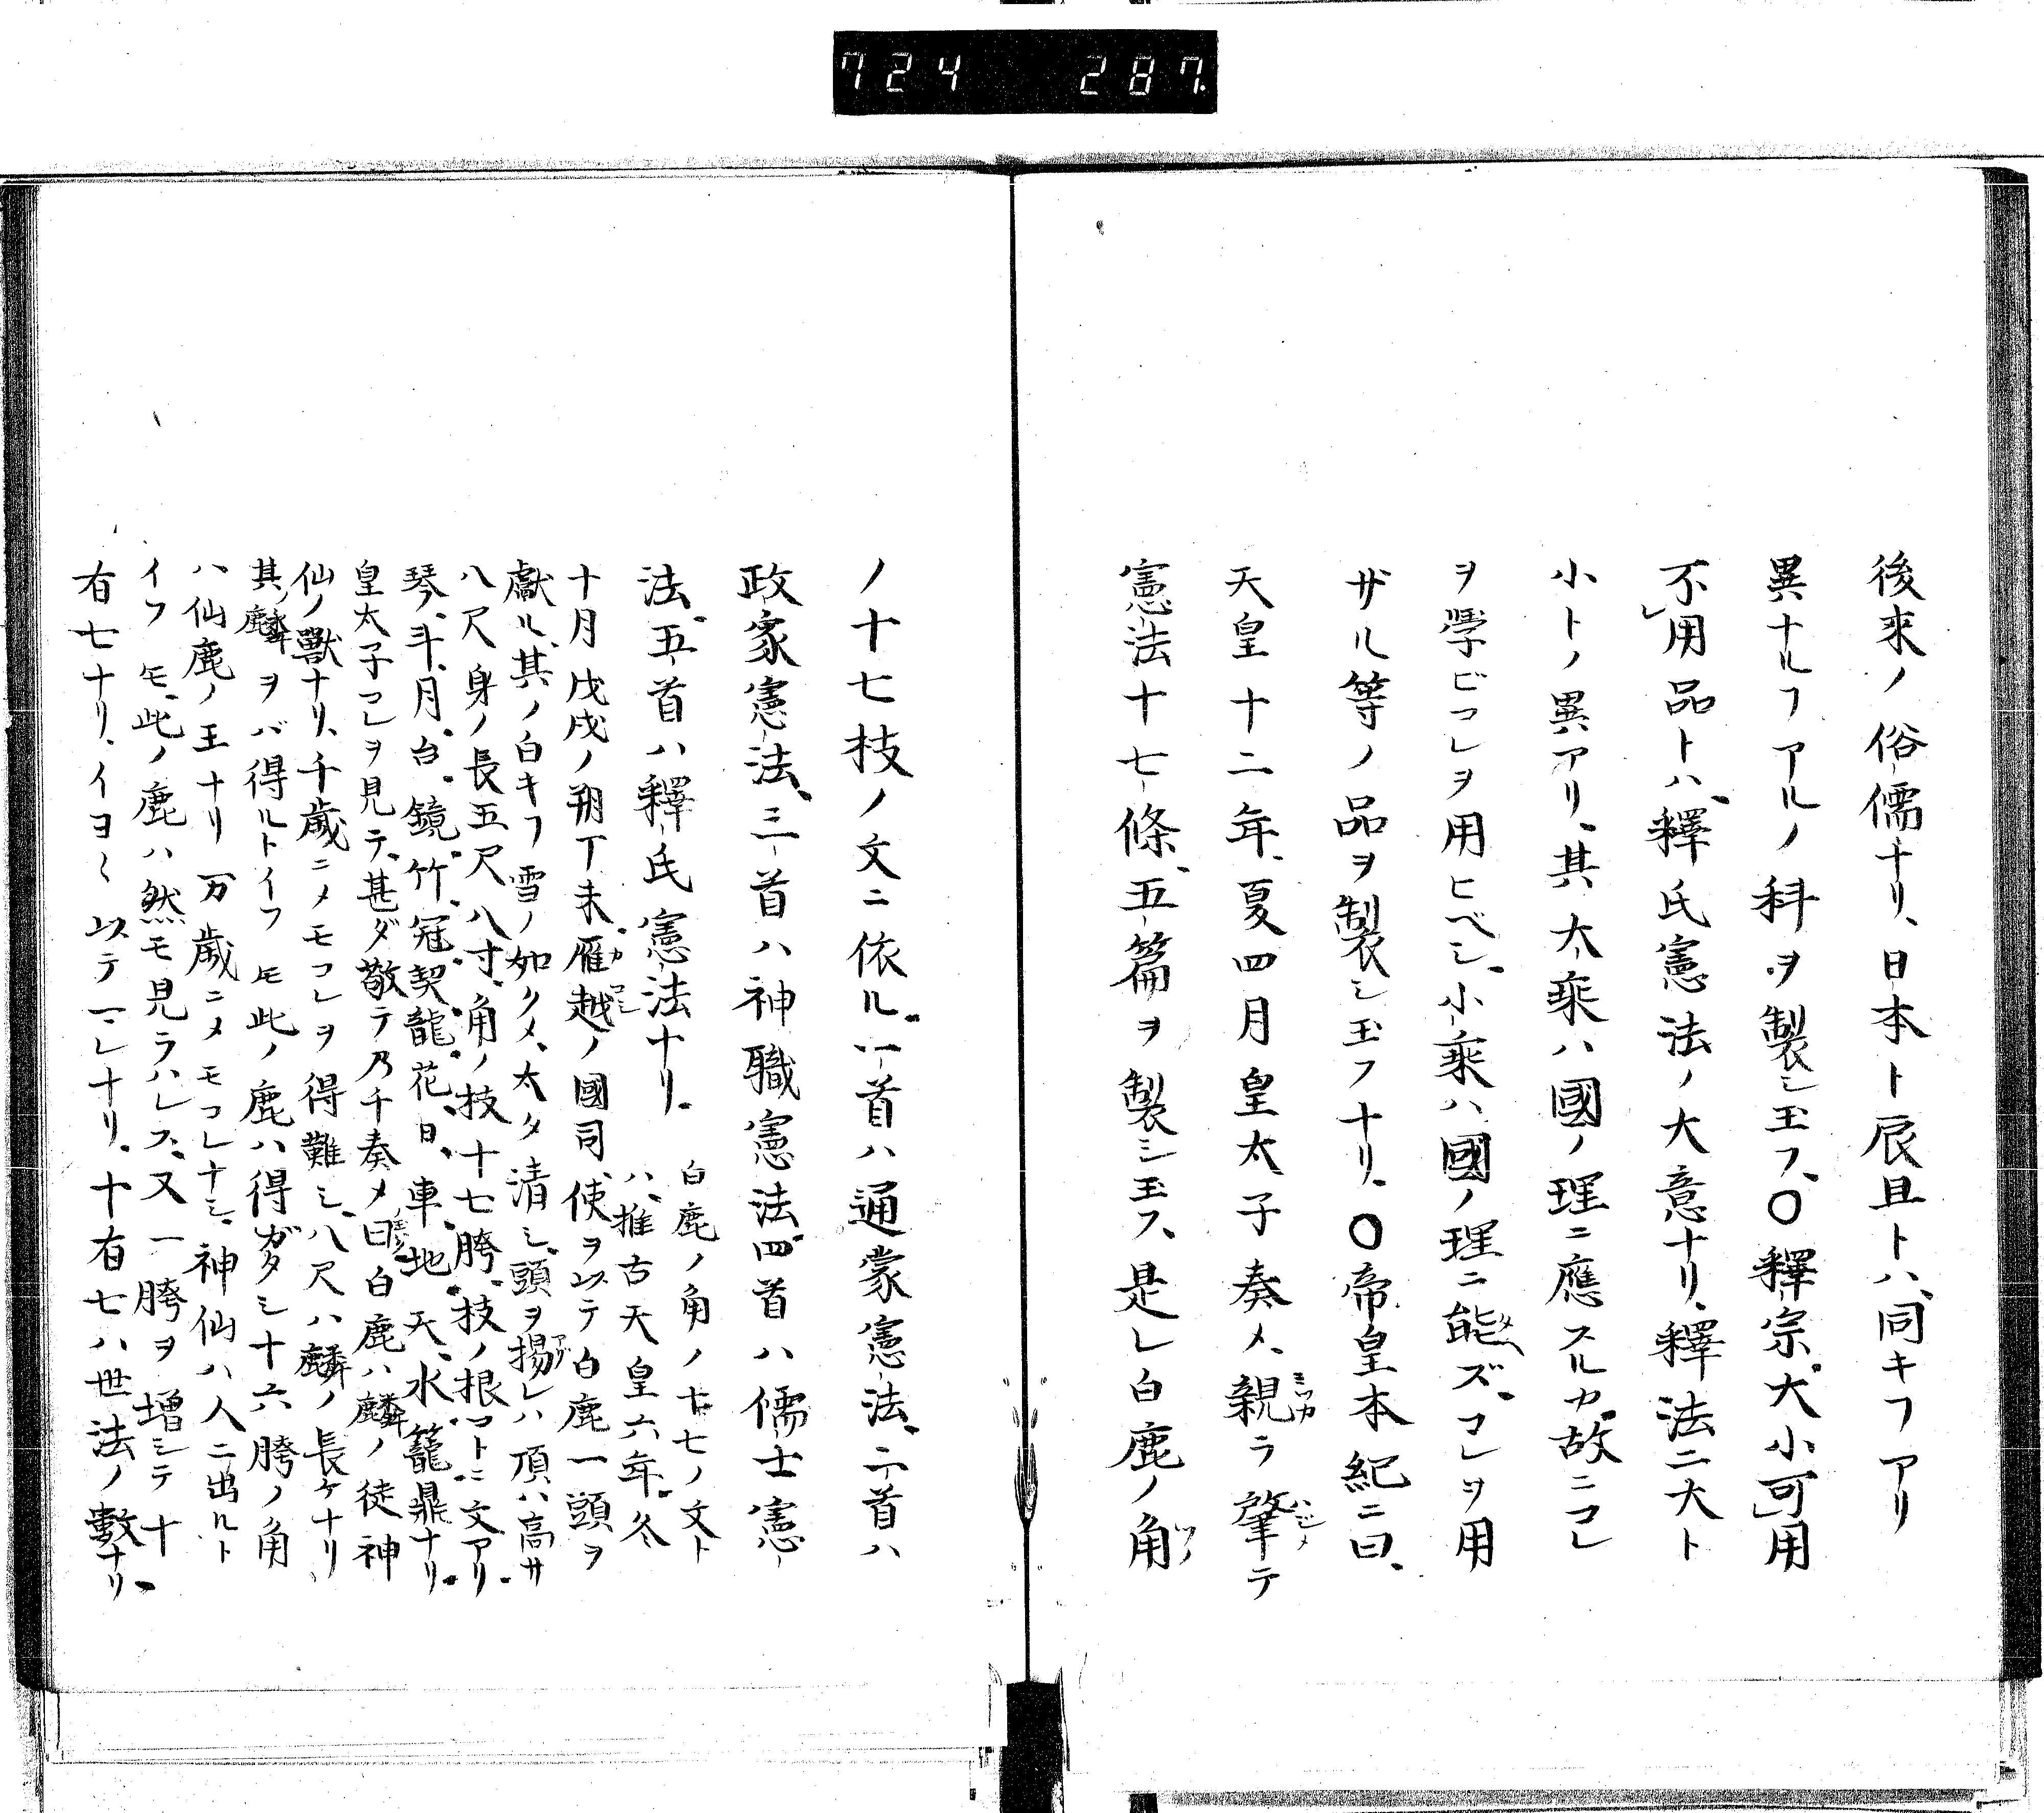 724 287.
後來ノ俗儒ナリ、日本ト辰旦トハ、同キヿアリ
異ナルヿアルノ科ヲ製シ玉フ、〇釋宗、大小可用
不用品トハ、釋氏憲法ノ大意ナリ、釋法ニ大ト
小トノ異アリ、其大乘ハ國ノ理ニ應スルカ故ニコレ
ヲ學ビコレヲ用ヒベシ、小乘ハ國ノ理ニ能ズ、コレヲ用
ザル等ノ品ヲ製シ玉フナリ、〇帝皇本紀ニ曰、
天皇十二年、夏四月皇太子奏メ、親ラ肇テ
憲法十七條、五篇ヲ製シ玉フ、是レ白鹿ノ角
ノ十七枝ノ文ニ依ル、一首ハ通蒙憲法、二首ハ
政家憲法、三首ハ神職憲法四首ハ儒士憲
法、五首ハ釋氏憲法ナリ、
白鹿ノ角ノ十七ノ文ト
ハ、推古天皇六年、冬
十月戊戌ノ朔丁未、雁越ノ國司、使ヲ以テ白鹿一頭ヲ
獻ル、其ノ白キヿ雪ノ如クメ、太タ清シ、頭ヲ揚レハ頂ハ高サ
八尺身ノ長五尺八寸、角ノ技十七胯、技ノ根コトニ文アリ、
琴、斗、月、台、鏡、竹、冠、契、龍、花、日、車、地、天、水、籠、鼎ナリ、
皇太子コレヲ見テ、甚ダ敬テ乃チ奏メ曰白鹿ハ麟ノ徒神
仙ノ獸ナリ、千歲ニメモコレヲ得難シ、八尺ハ麟ノ長ケナリ
其ノ麟ヲバ得ルトイフ𪜈此ノ鹿ハ得ガタシ十六胯ノ角
ハ仙鹿ノ王ナリ一万歲ニメモコレナシ、神仙ハ人ニ出ルト
イフ𪜈、此ノ鹿ハ然モ見ラハレス、又一胯ヲ增シテ十
有七ナリ、イヨ〱以テマレナリ、十有七ハ世法ノ數ナリ、